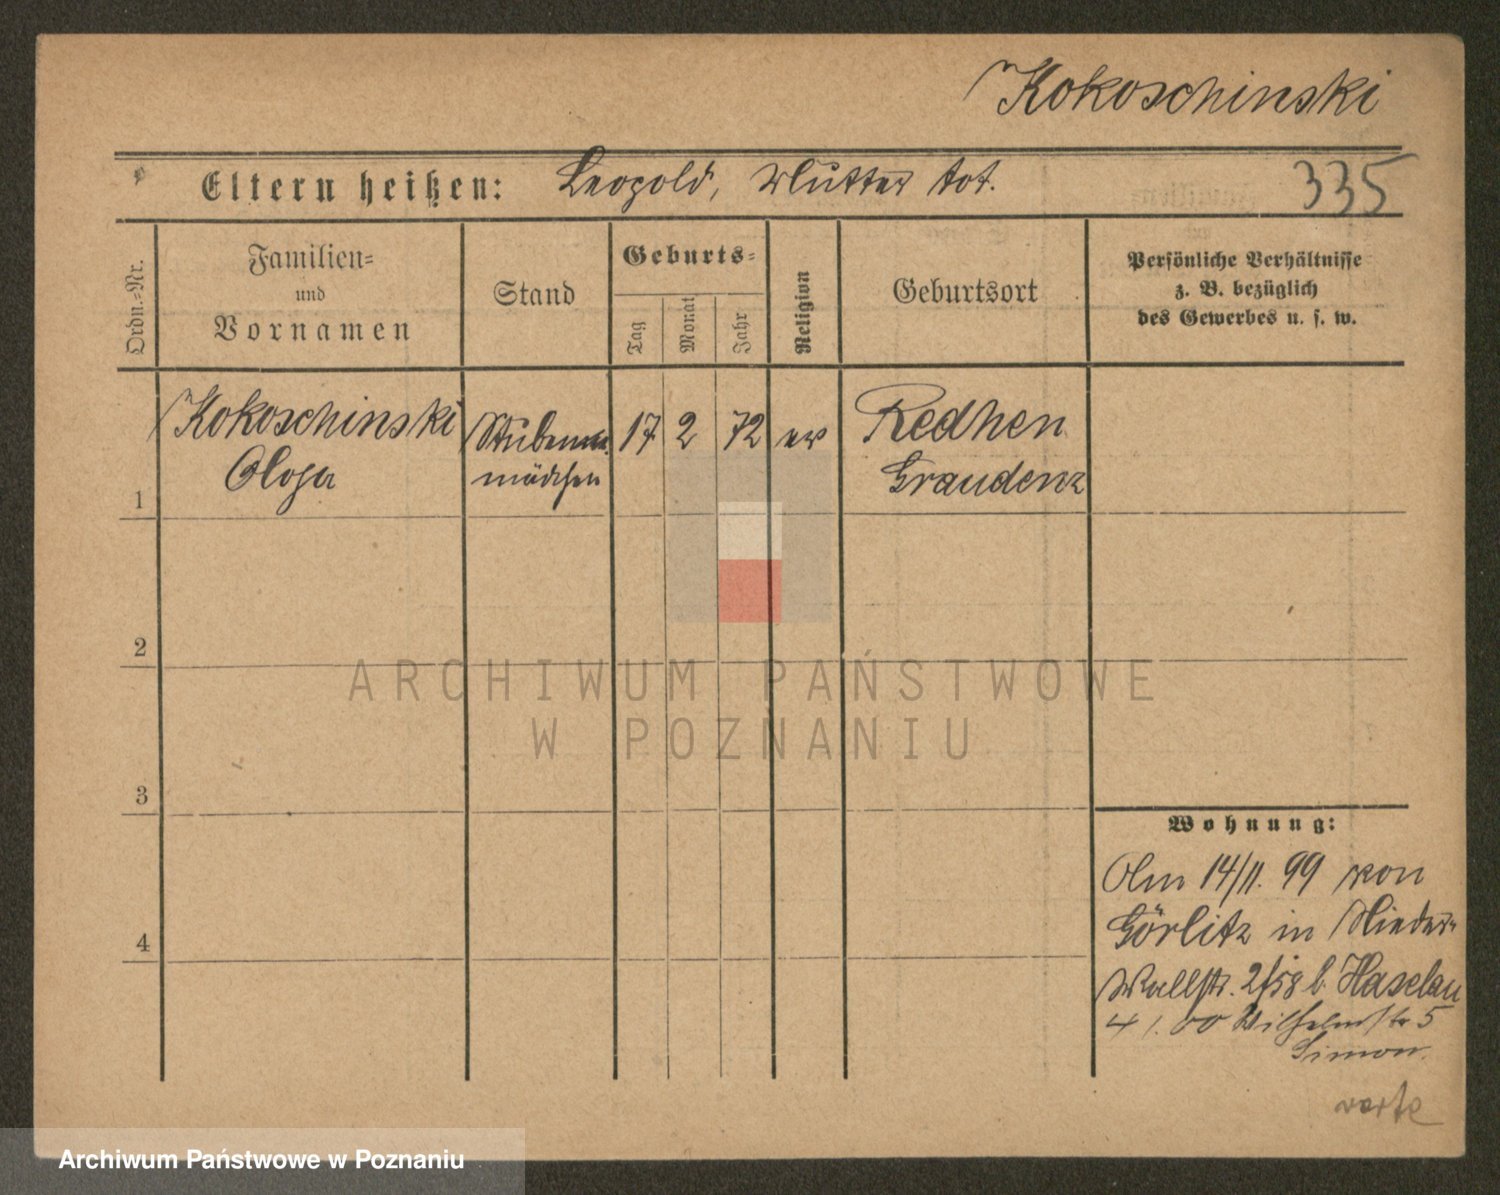 Kokoschinski
Eltern heißen: Leopold, Mutter tot.
335
Ordn.-Nr.
Familien-
und
Vornamen
Stand
Geburts-
Tag
Monat
Jahr
Religion
Geburtsort
Persönliche Verhältnisse
z. B. bezüglich
des Gewerbes u. s. w.
1
Kokoschinski
Olga
Stuben
mädchen
17
2
72
ev
Redhen
Graudenz
2
3
4
ARCHIWUM PAŃSTWOWE
W POZNANIU
Wohnung:
14/11. 99 von
Görlitz in Nieder-
Wallstr. 2/58 b. Haselau
4 1. 00 Wilhelmstr 5
Simon.
verte
Archiwum Państwowe w Poznaniu